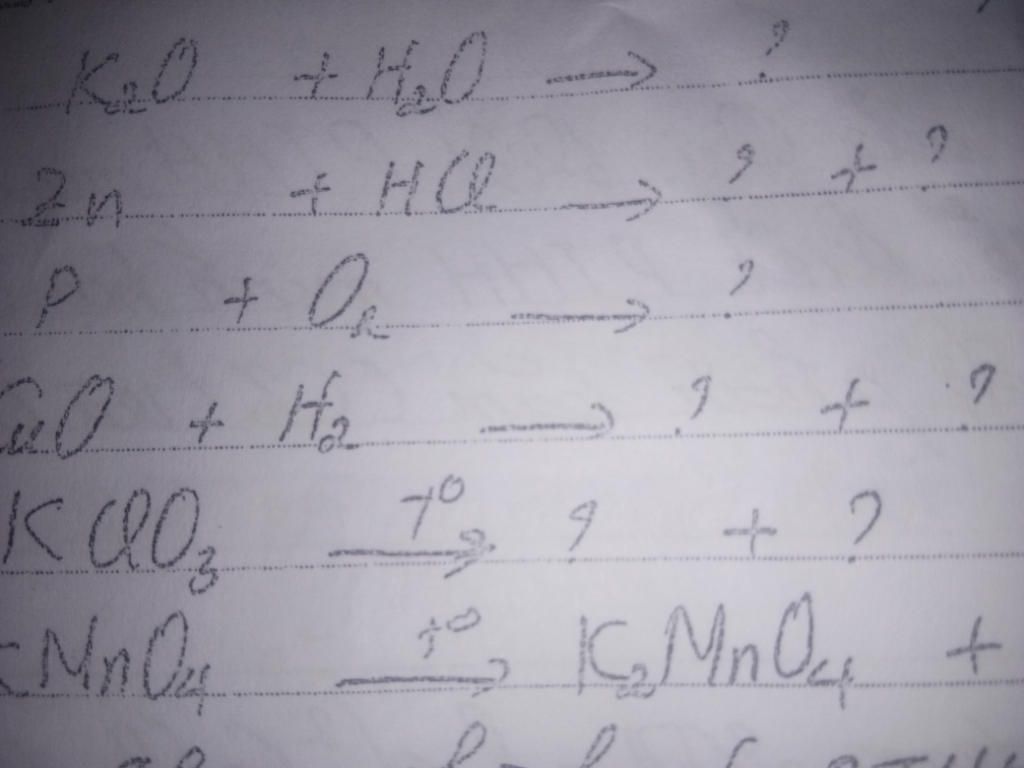 K₂O + H₂O → ?
Zn + HCl → ? + ?
P + O₂ → ?
CuO + H₂ → ? + ?
KClO₃ t° → ? + ?
KMnO₄ t° → K₂MnO₄ +